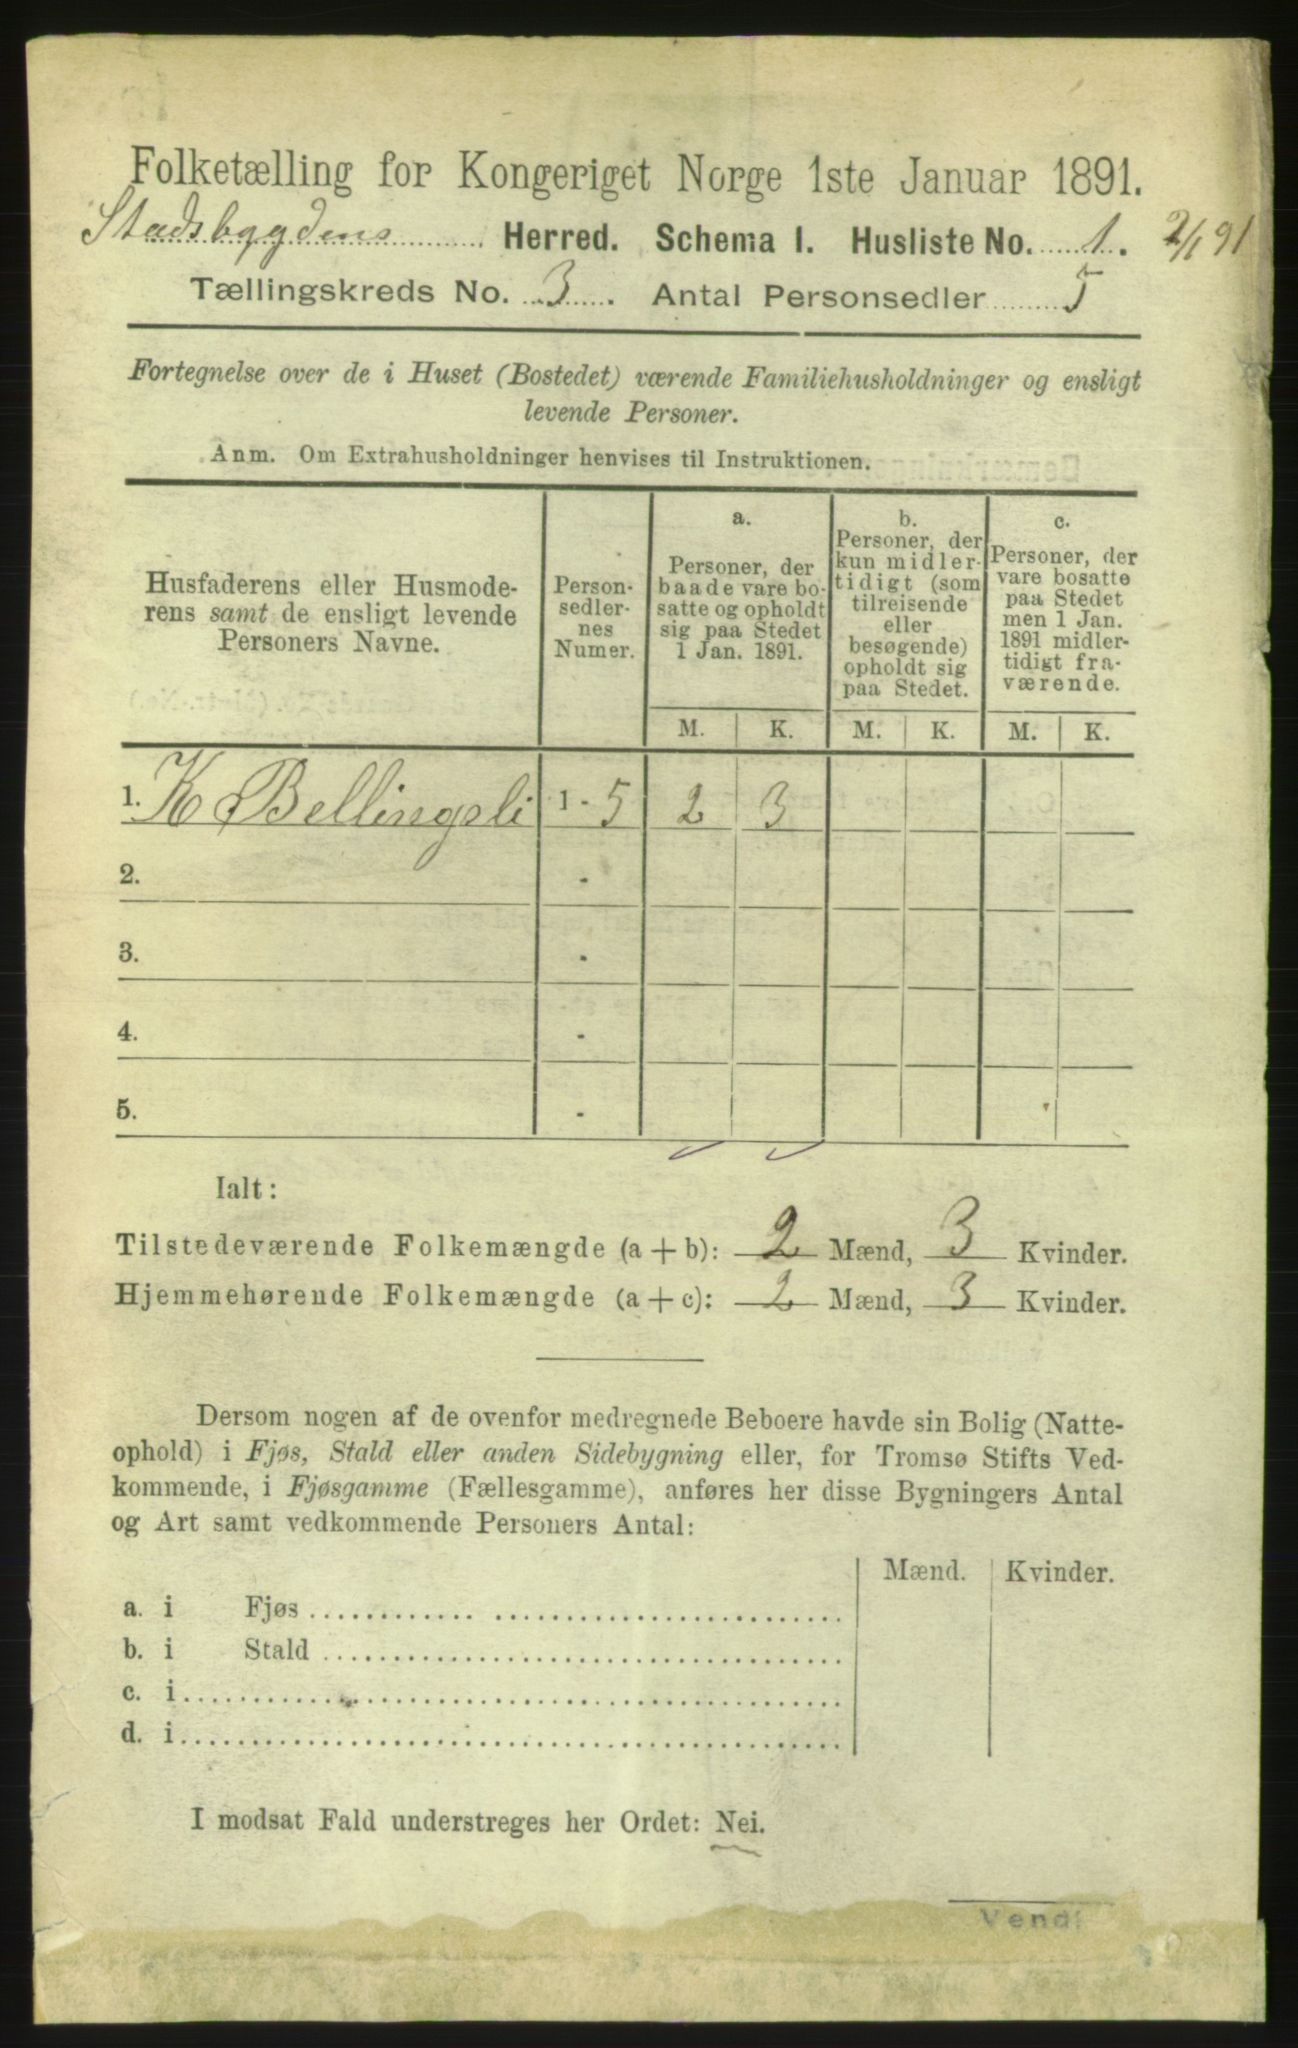 Folketælling for Kongeriget Norge 1ste Januar 1891.
Stadsbygdens Herred. Schema I. Husliste No. 1. 2/1 91
Tællingskreds No. 3. Antal Personsedler 5
Fortegnelse over de i Huset (Bostedet) værende Familiehusholdninger og ensligt
levende Personer.
Anm. Om Extrahusholdninger henvises til Instruktionen.
Husfaderens eller Husmode-
rens samt de ensligt levende
Personers Navne.
Person-
sedler-
nes
Numer.
a.
Personer, der
baade vare bo-
satte og opholdt
sig paa Stedet
1 Jan. 1891.
b.
Personer, der
kun midler-
tidigt (som
tilreisende
eller
besøgende)
opholdt sig
paa Stedet.
c.
Personer, der
vare bosatte
paa Stedet
men 1 Jan.
1891 midler-
tidigt fra-
værende.
M. K. M. K. M. K.
1. K Bellingsli 1 - 5 2 3
2. -
3. -
4. -
5. -
Ialt:
Tilstedeværende Folkemængde (a + b): 2 Mænd, 3 Kvinder.
Hjemmehørende Folkemængde (a + c): 2 Mænd, 3 Kvinder.
Dersom nogen af de ovenfor medregnede Beboere havde sin Bolig (Natte-
ophold) i Fjøs, Stald eller anden Sidebygning eller, for Tromsø Stifts Ved-
kommende, i Fjøsgamme (Fællesgamme), anføres her disse Bygningers Antal
og Art samt vedkommende Personers Antal:
Mænd. Kvinder.
a. i Fjøs
b. i Stald
c. i
d. i
I modsat Fald understreges her Ordet: Nei.
Vend!